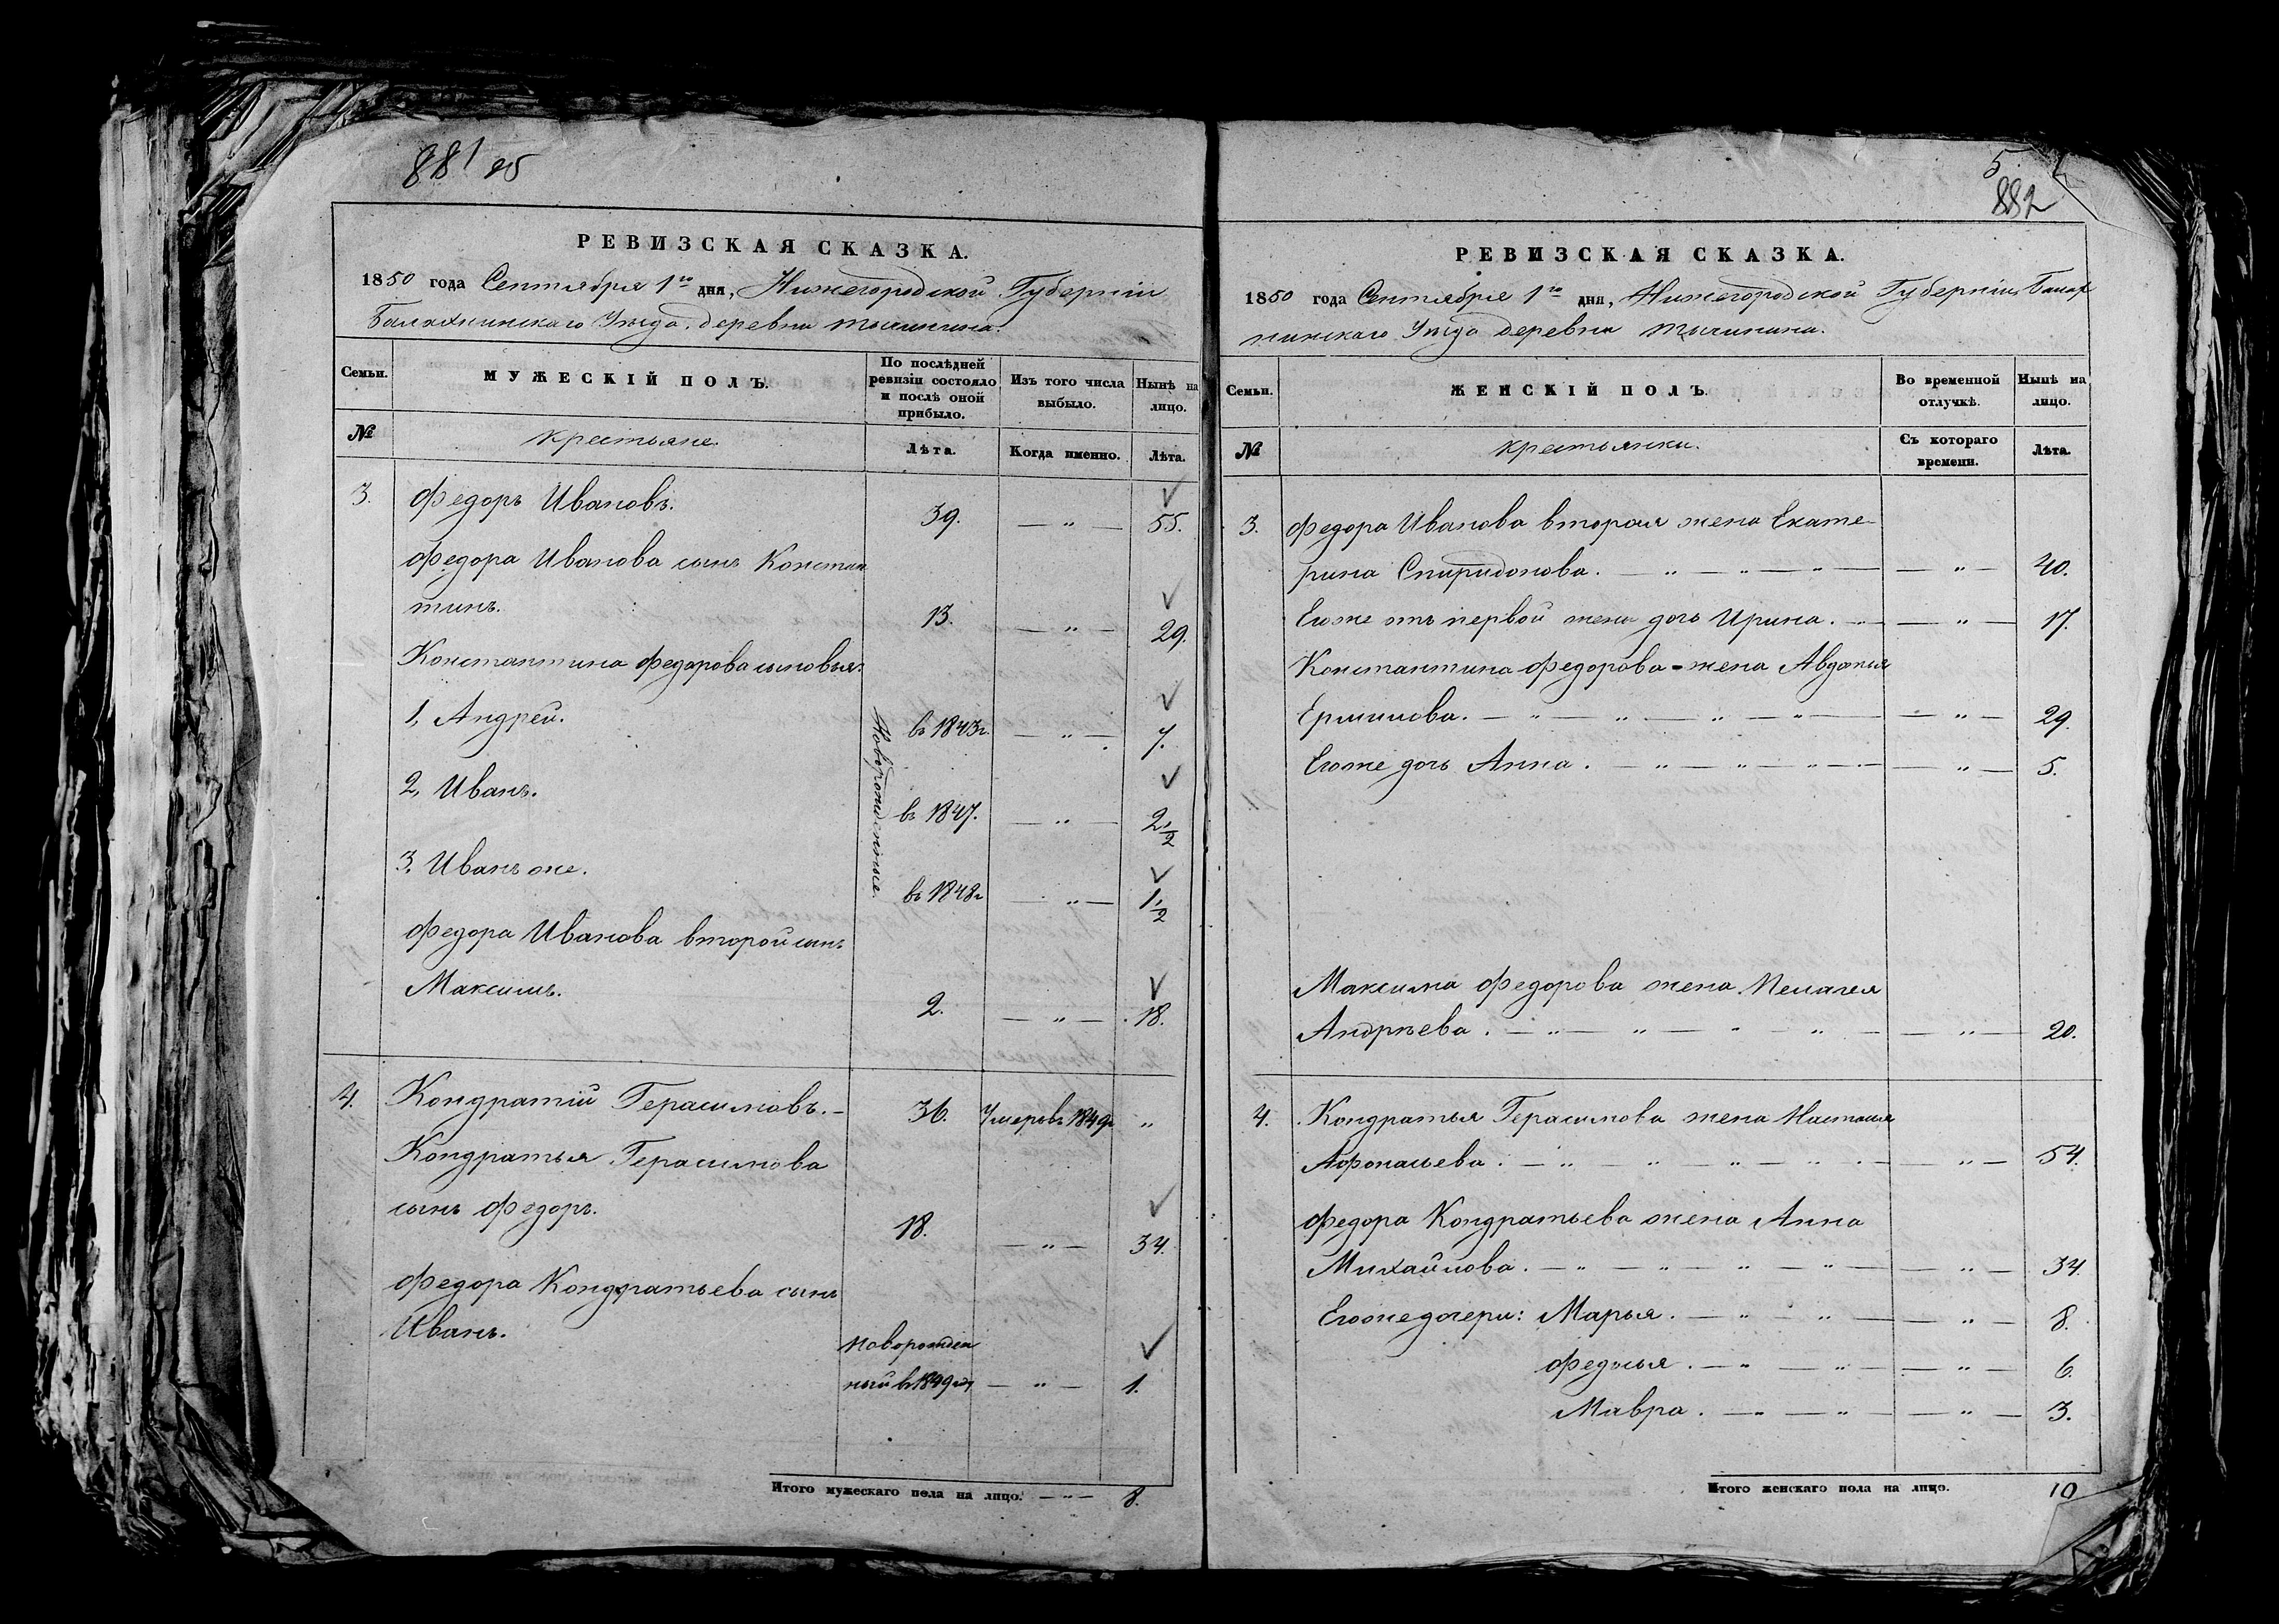 881 об
РЕВИЗСКАЯ СКАЗКА.
1850 года Сентября 1го дня, Нижегородской Губерніи
Балахнинскаго Уѣзда, деревни
Семьи.
МУЖЕСКІЙ ПОЛЪ.
По послѣдней ревизіи состояло и послѣ оной прибыло.
Изъ того числа выбыло.
Нынѣ на лицо.
№
Крестьяне.
Лѣта.
Когда именно.
Лѣта.
3. Федоръ Ивановъ. 39. — " — 55.
Федора Иванова сынъ Констан
тинъ. 13. — " — 29.
Константина Федорова сыновья:
Новорожденные
1, Андрей. въ 1843г. — " — 7.
2, Иванъ. въ 1847. — " — 2 1/2
3, Иванъ же. въ 1848г — " — 1 1/2
Федора Иванова второй сынъ
Максимъ. 2. — " — 18.
4. Кондратій Герасимовъ. — 36. Умеръ въ 1849г "
Кондратья Герасимова
сынъ Федоръ. 18. — " — 34.
Федора Кондратьева сынъ
Иванъ. новорожден
ный въ 1849 — " — 1.
Итого мужескаго пола на лицо. — " — 8.
5.
882
РЕВИЗСКАЯ СКАЗКА.
1850 года Сентября 1го дня, Нижегородской Губерніи Балах
нинскаго Уѣзда деревни
Семьи.
ЖЕНСКІЙ ПОЛЪ.
Во временной отлучкѣ.
Нынѣ на лицо.
№
Крестьянки.
Съ котораго времени.
Лѣта.
3. Федора Иванова вторая жена Екате-
рина Спиридонова. — " — " — " — — " — 40.
Егоже отъ первой жены дочь Ирина. — " — — " — 17.
Константина Федорова - жена Авдотья
Ермилова. — " — " — " — " — — " — 29.
Егоже дочь Анна. — " — " — " — — " — 5.
Максима Федорова жена Пелагея
Андрѣева. — " — " — " — " — — " — 20.
4. Кондратья Герасимова жена Настасья
Афонасьева. — " — " — " — " — — " — 54.
Федора Кондратьева жена Анна
Михайлова. — " — " — " — " — — " — 34.
Егоже дочери: Марья. — " — " — — " — 8.
Федосья. — " — " — — " — 6.
Мавра. — " — " — — " — 3.
Итого женскаго пола на лицо. 10